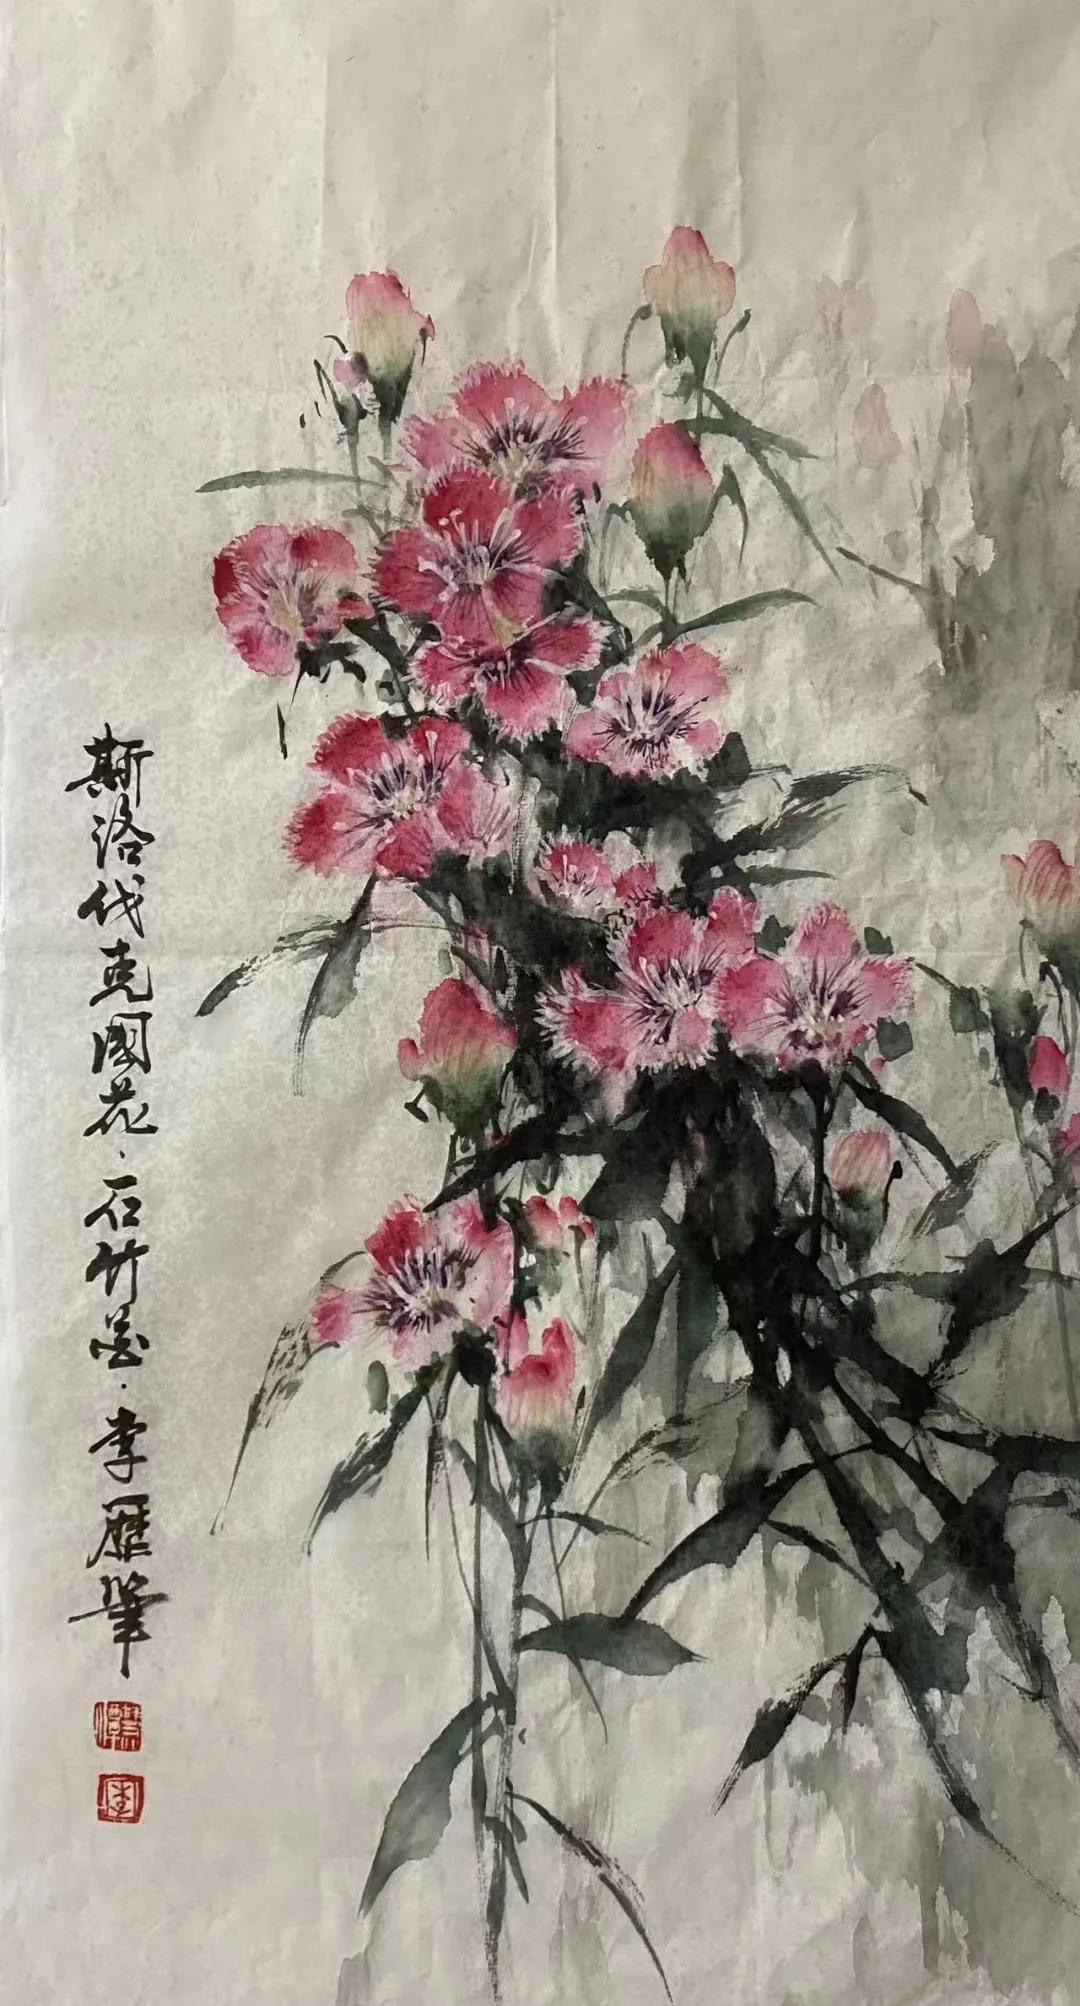 斯洛伐克国花·石竹花·李雁笔